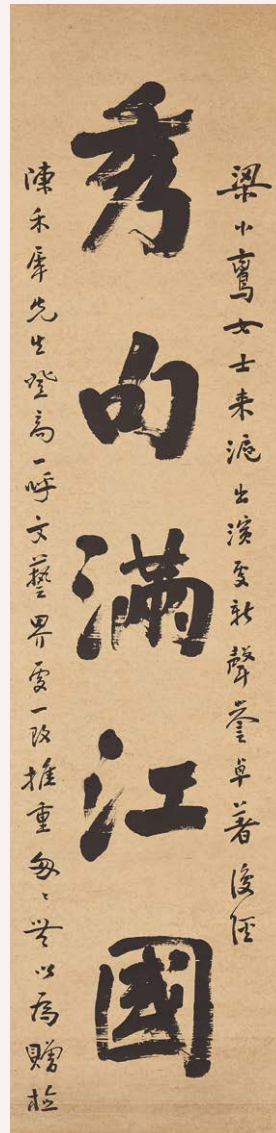 梁小鸞女士来滬出演更新聲譽卓著復經
秀句滿江國
陳禾犀先生登高一呼文藝界更一致推重匆々無以為贈檢